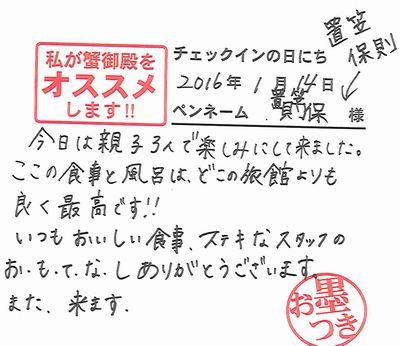 私が蟹御殿を
オススメ
します!!
チェックインの日にち
2016年 1月14日
ペンネーム 置笠 則保 様
置笠
保則
今日は親子3人で楽しみにして来ました。
ここの食事と風呂は、どこの旅館よりも
良く最高です!!
いつもおいしい食事、ステキなスタッフの
お・も・て・な・し ありがとうございます。
また、来ます.
お墨つき